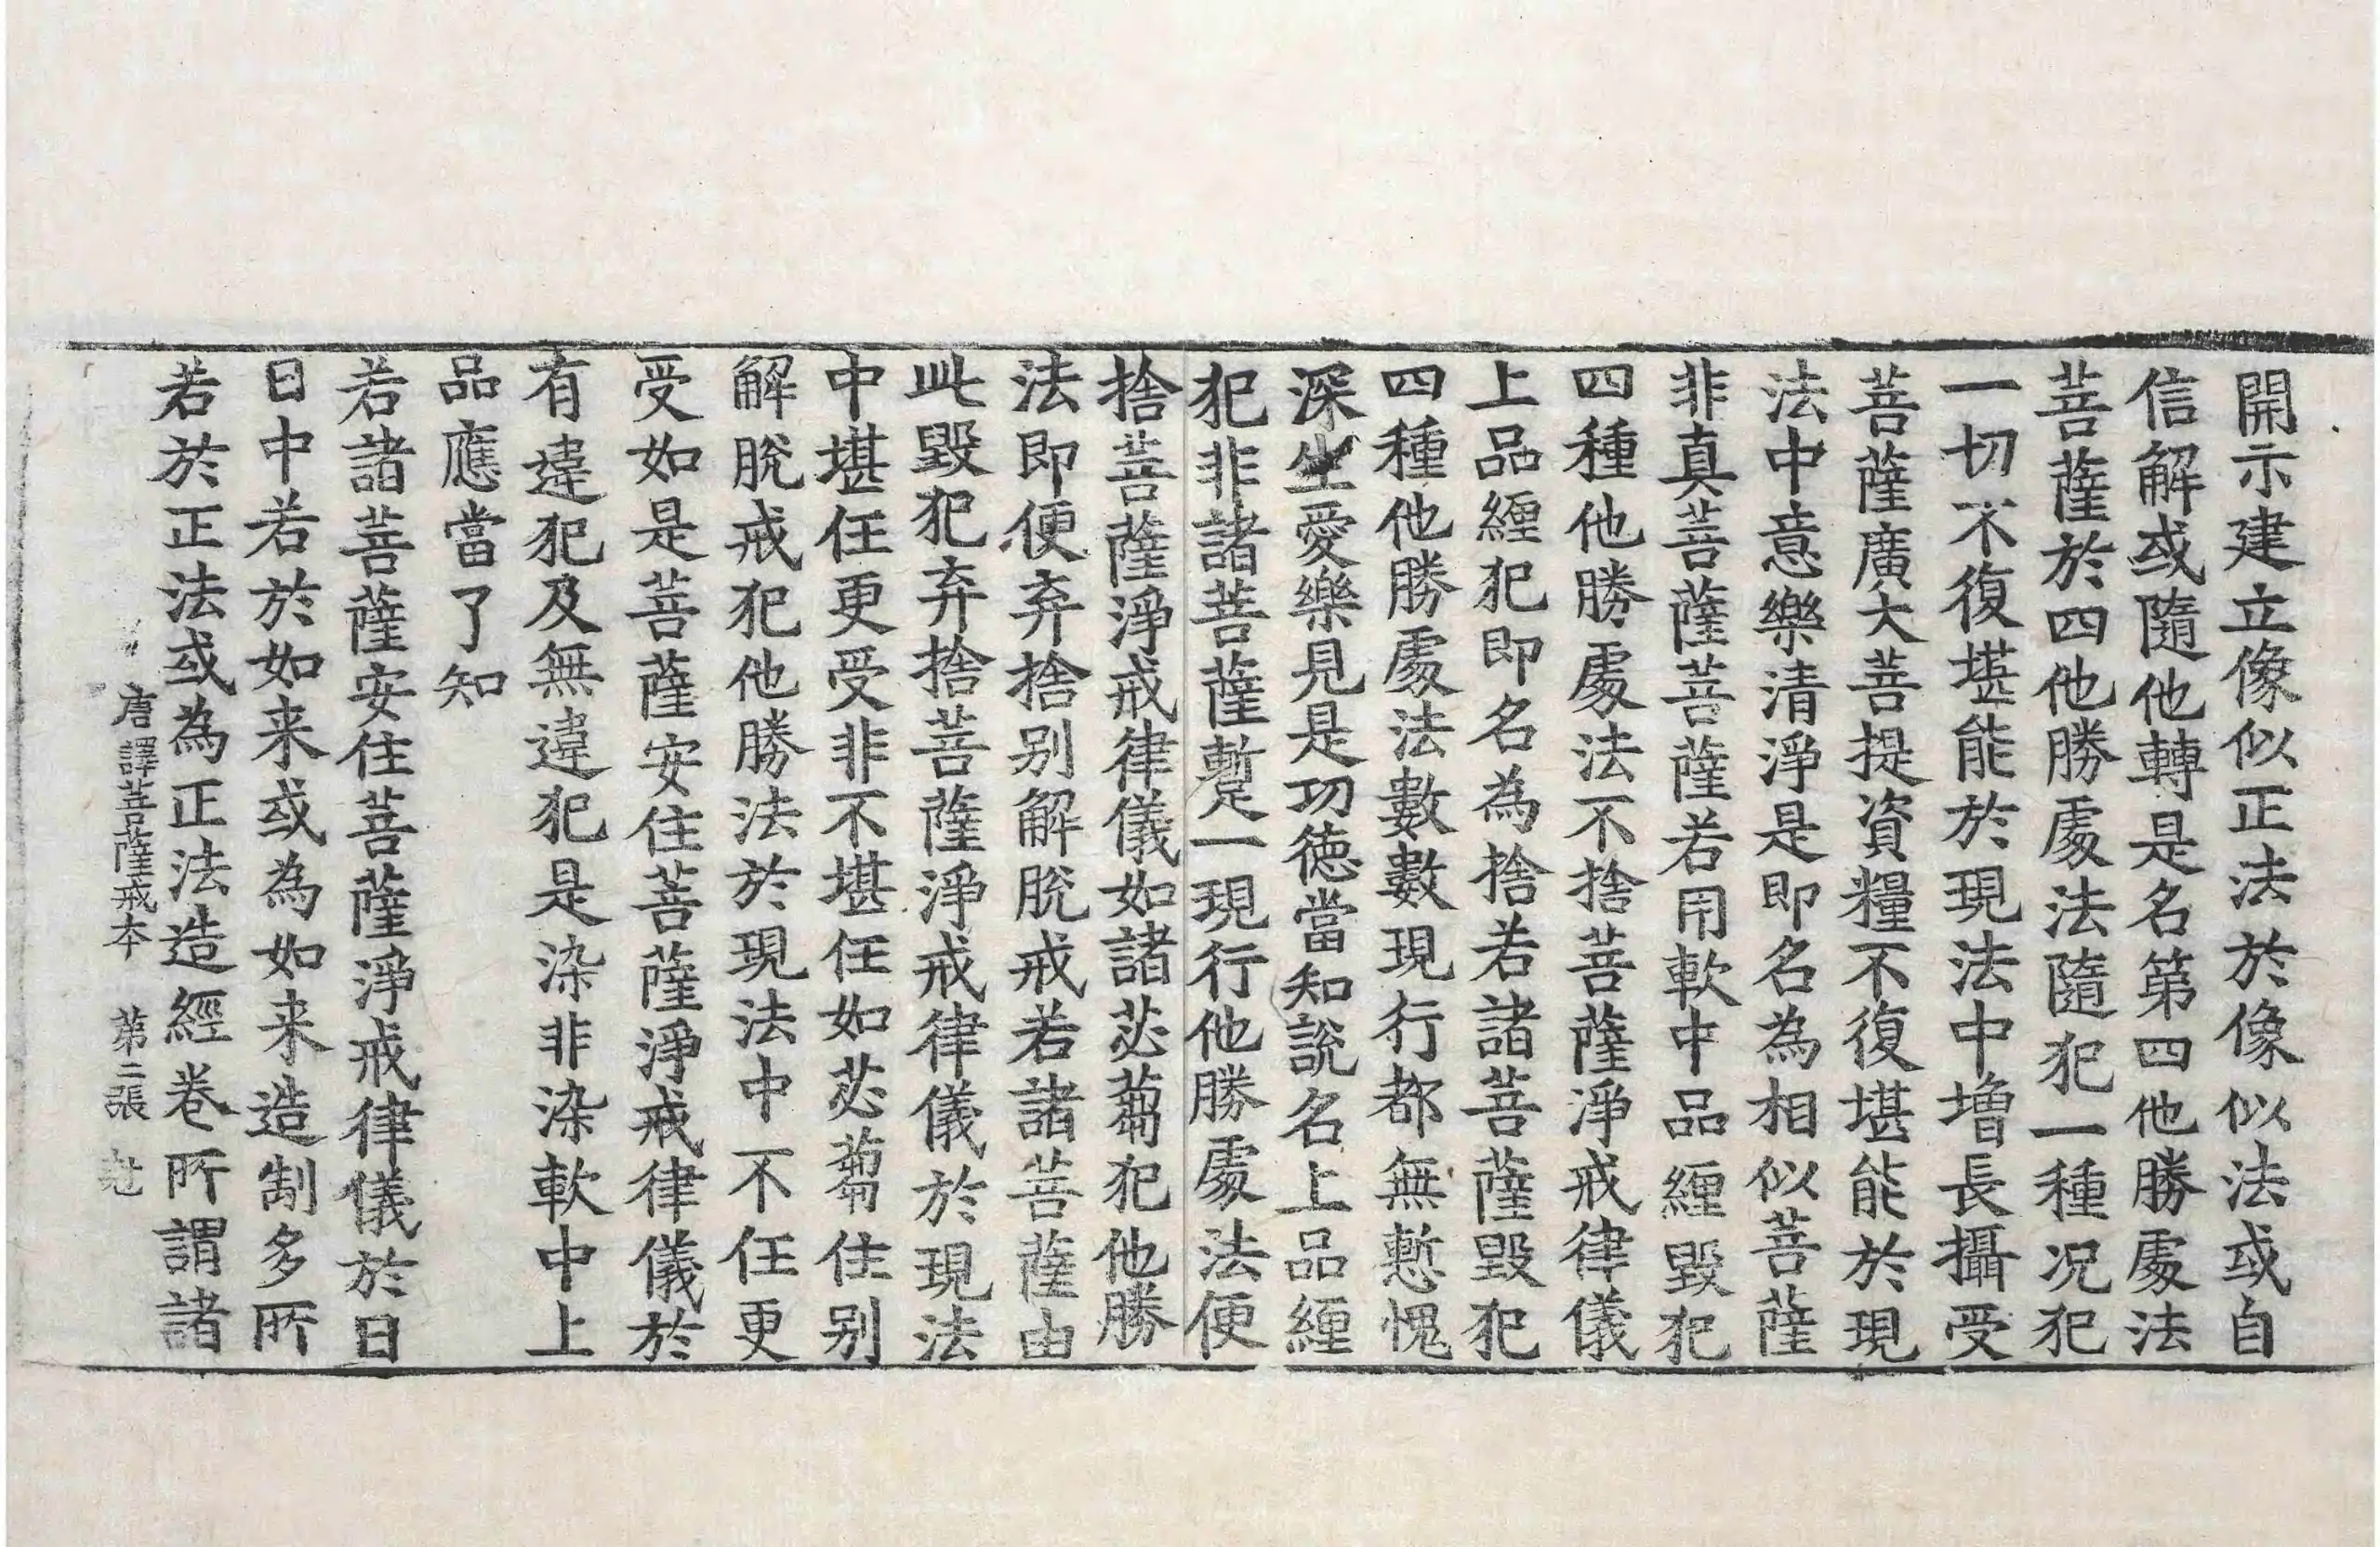 開示建立像似正法於像似法或自
信解或隨他轉是名第四他勝處法
菩薩於四他勝處法隨犯一種况犯
一切不復堪能於現法中增長攝受
菩薩廣大菩提資糧不復堪能於現
法中意樂清淨是即名為相似菩薩
非真菩薩菩薩若用軟中品纏毀犯
四種他勝處法不捨菩薩淨戒律儀
上品纏犯即名為捨若諸菩薩毀犯
四種他勝處法數數現行都無慙愧
深生愛樂見是功德當知說名上品纏
犯非諸菩薩蹔一現行他勝處法便
捨菩薩淨戒律儀如諸苾蒭犯他勝
法即便弃捨别解脫戒若諸菩薩由
此毀犯弃捨菩薩淨戒律儀於現法
中堪任更受非不堪任如苾蒭住别
解脫戒犯他勝法於現法中不任更
受如是菩薩安住菩薩淨戒律儀於
有違犯及無違犯是染非染軟中上
品應當了知
若諸菩薩安住菩薩淨戒律儀於日
日中若於如来或為如来造制多所
若於正法或為正法造經卷所謂諸
唐譯菩薩戒本 第二張